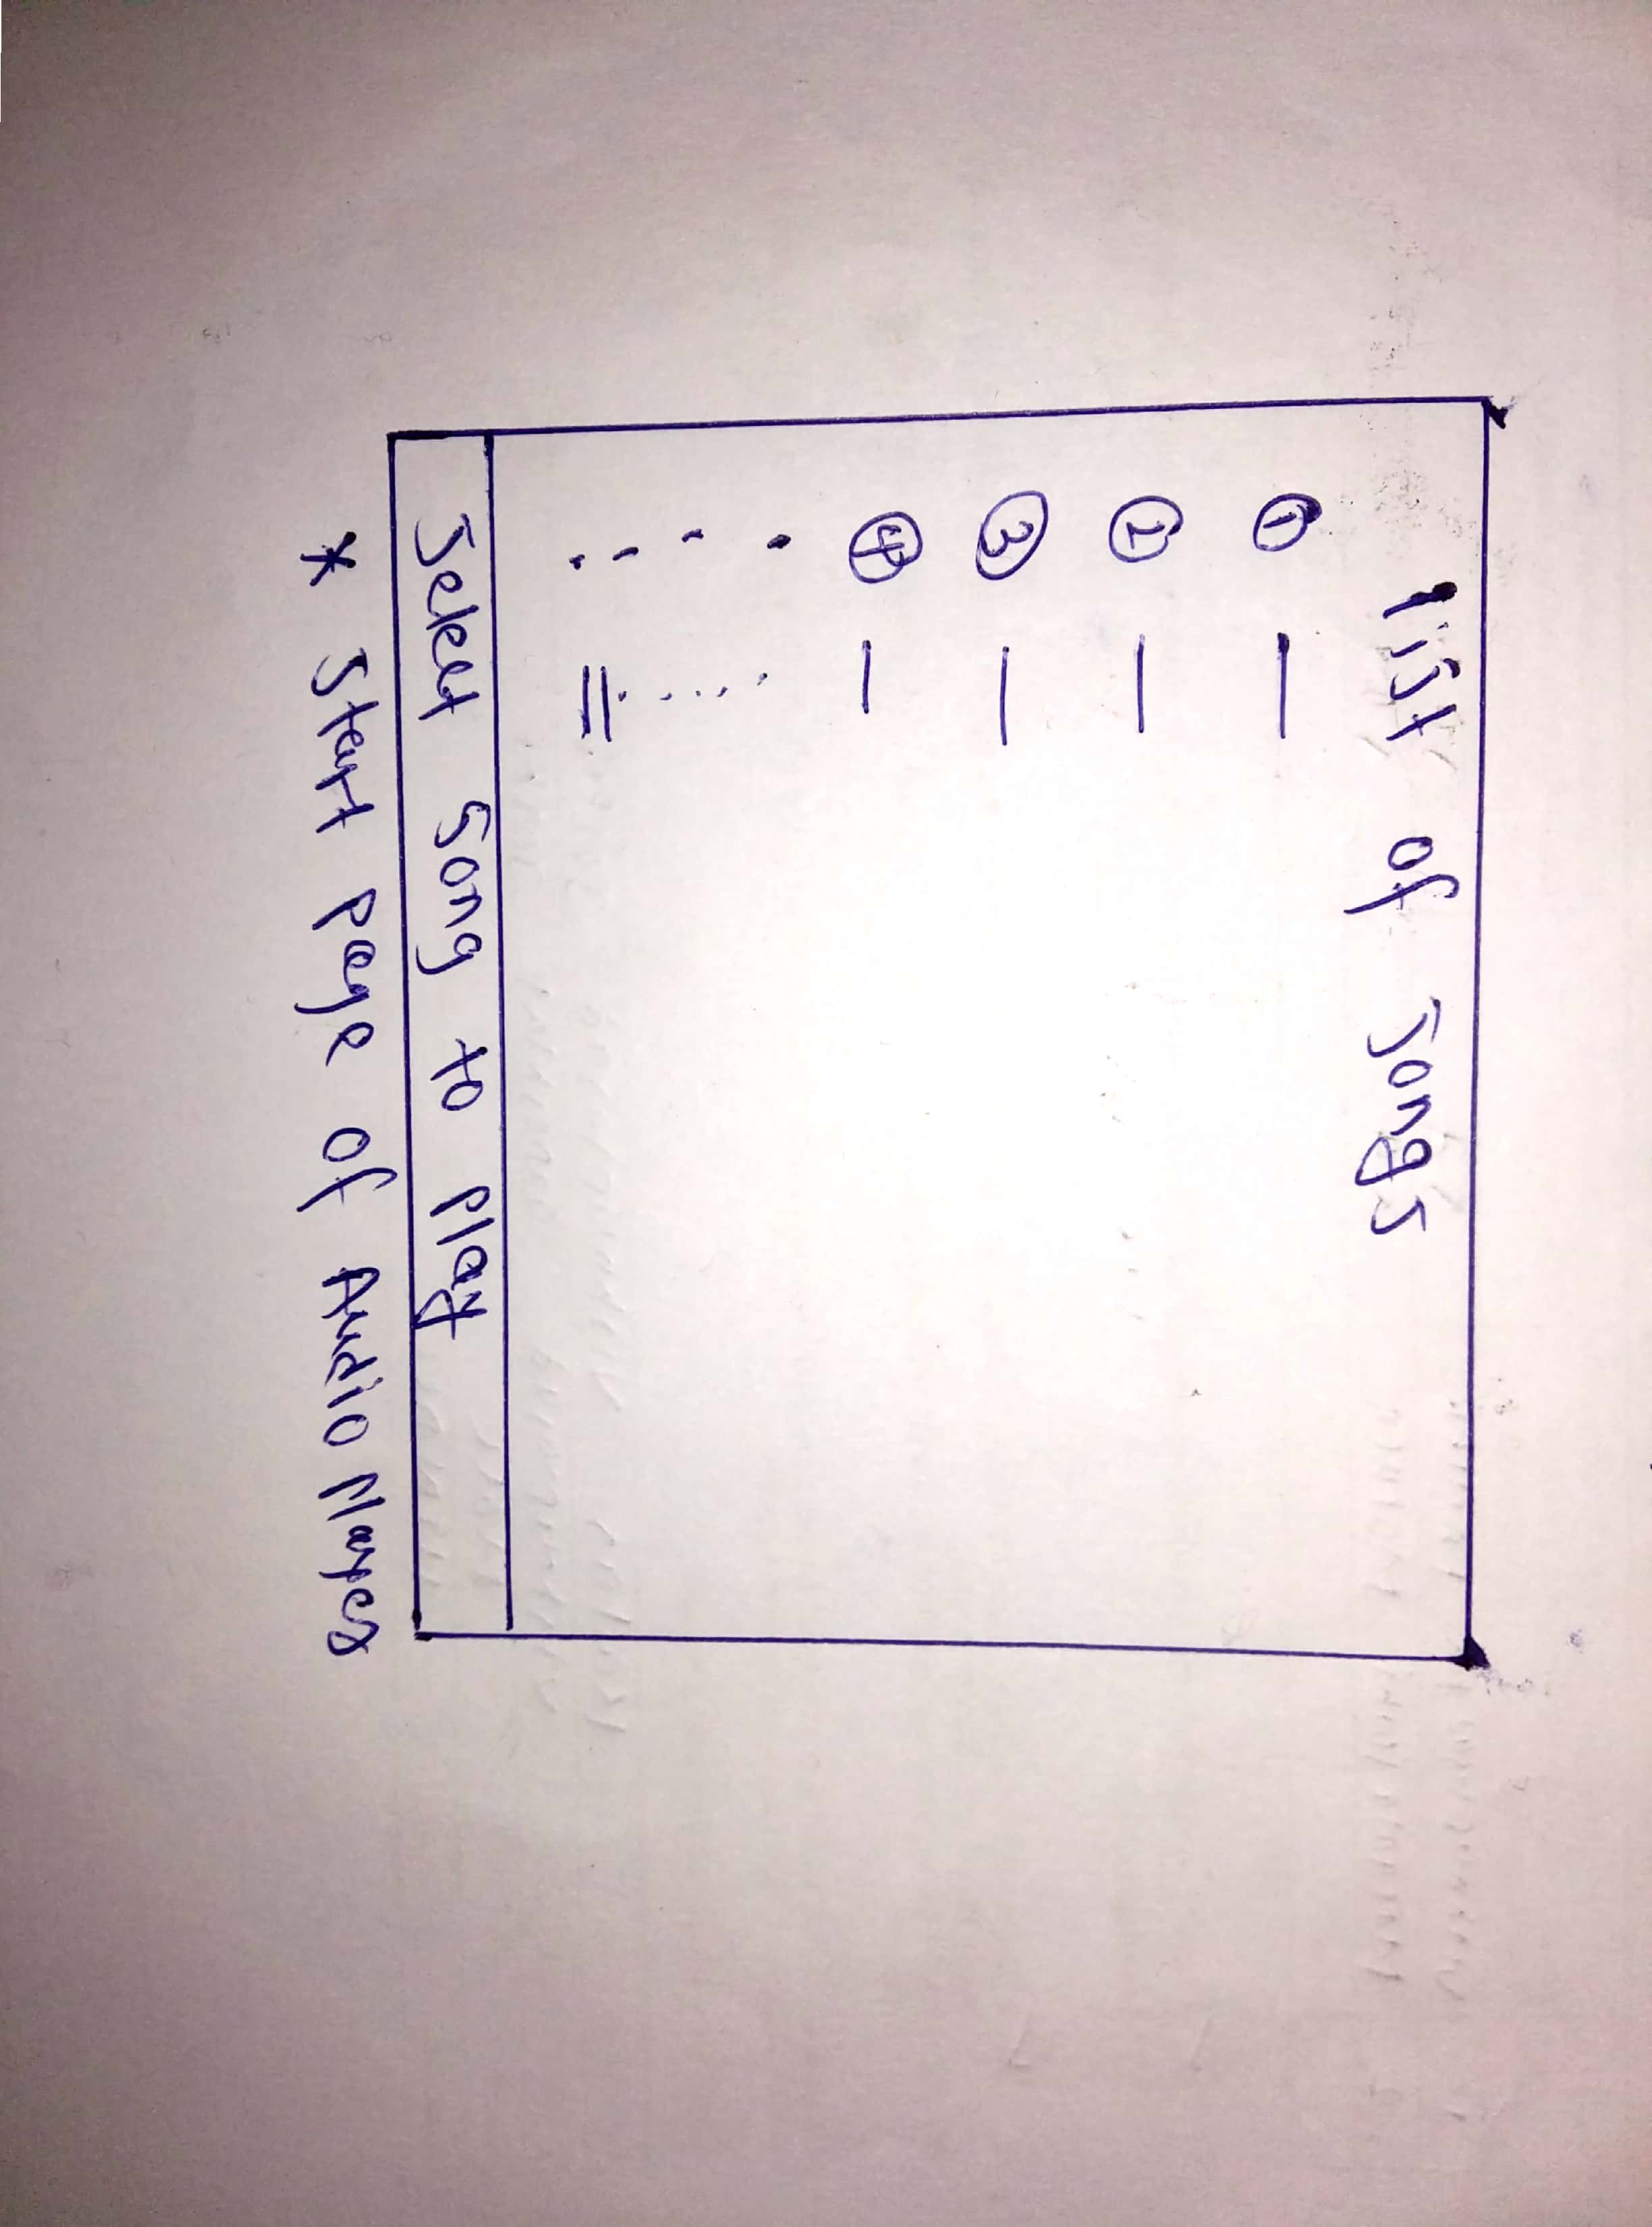 List of Songs
① —
② —
③ —
④ —
Select Song to play
* Start page of Audio Player